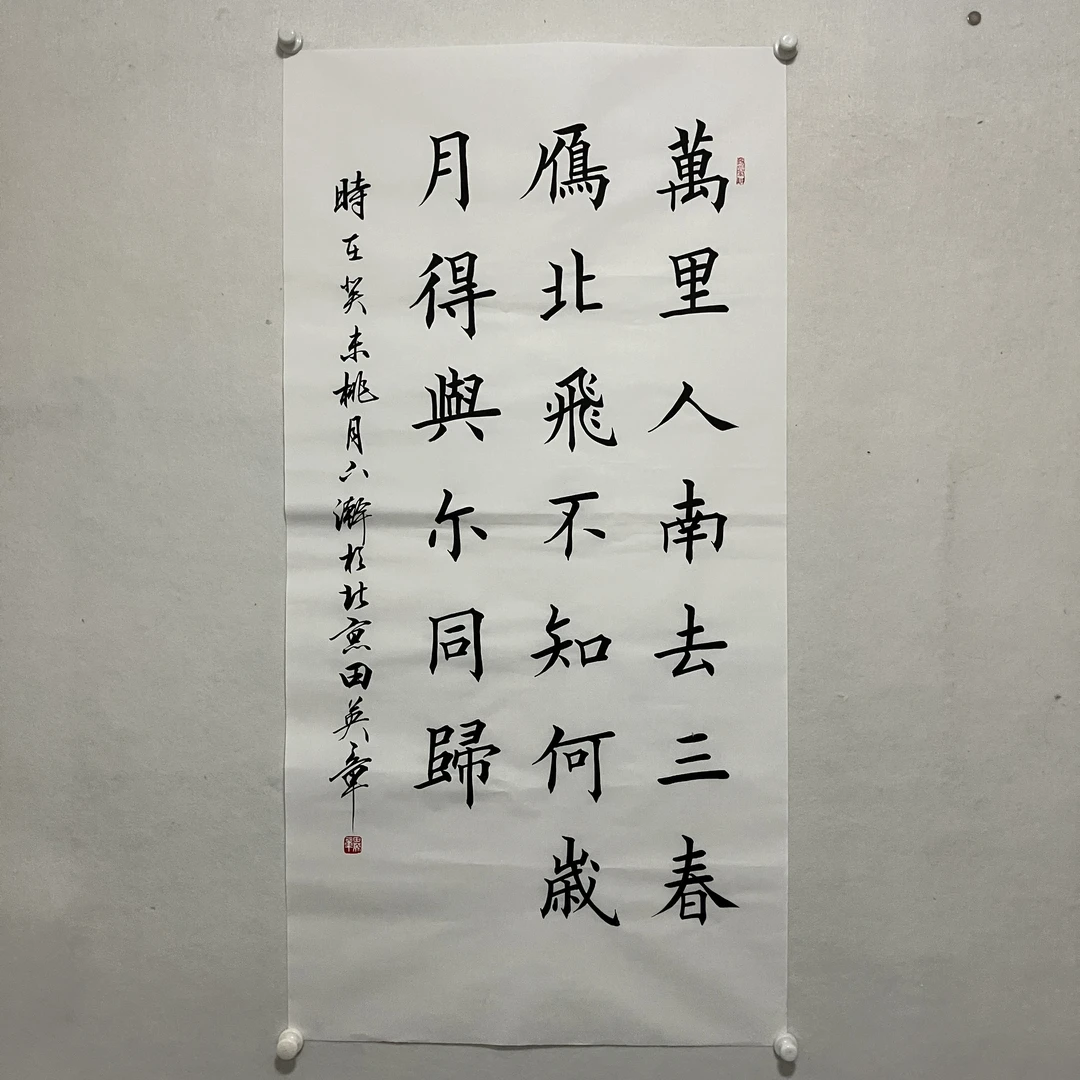 萬里人南去三春
鴈北飛不知何歲
月得與尔同歸
時在癸未桃月下澣於北京田英章